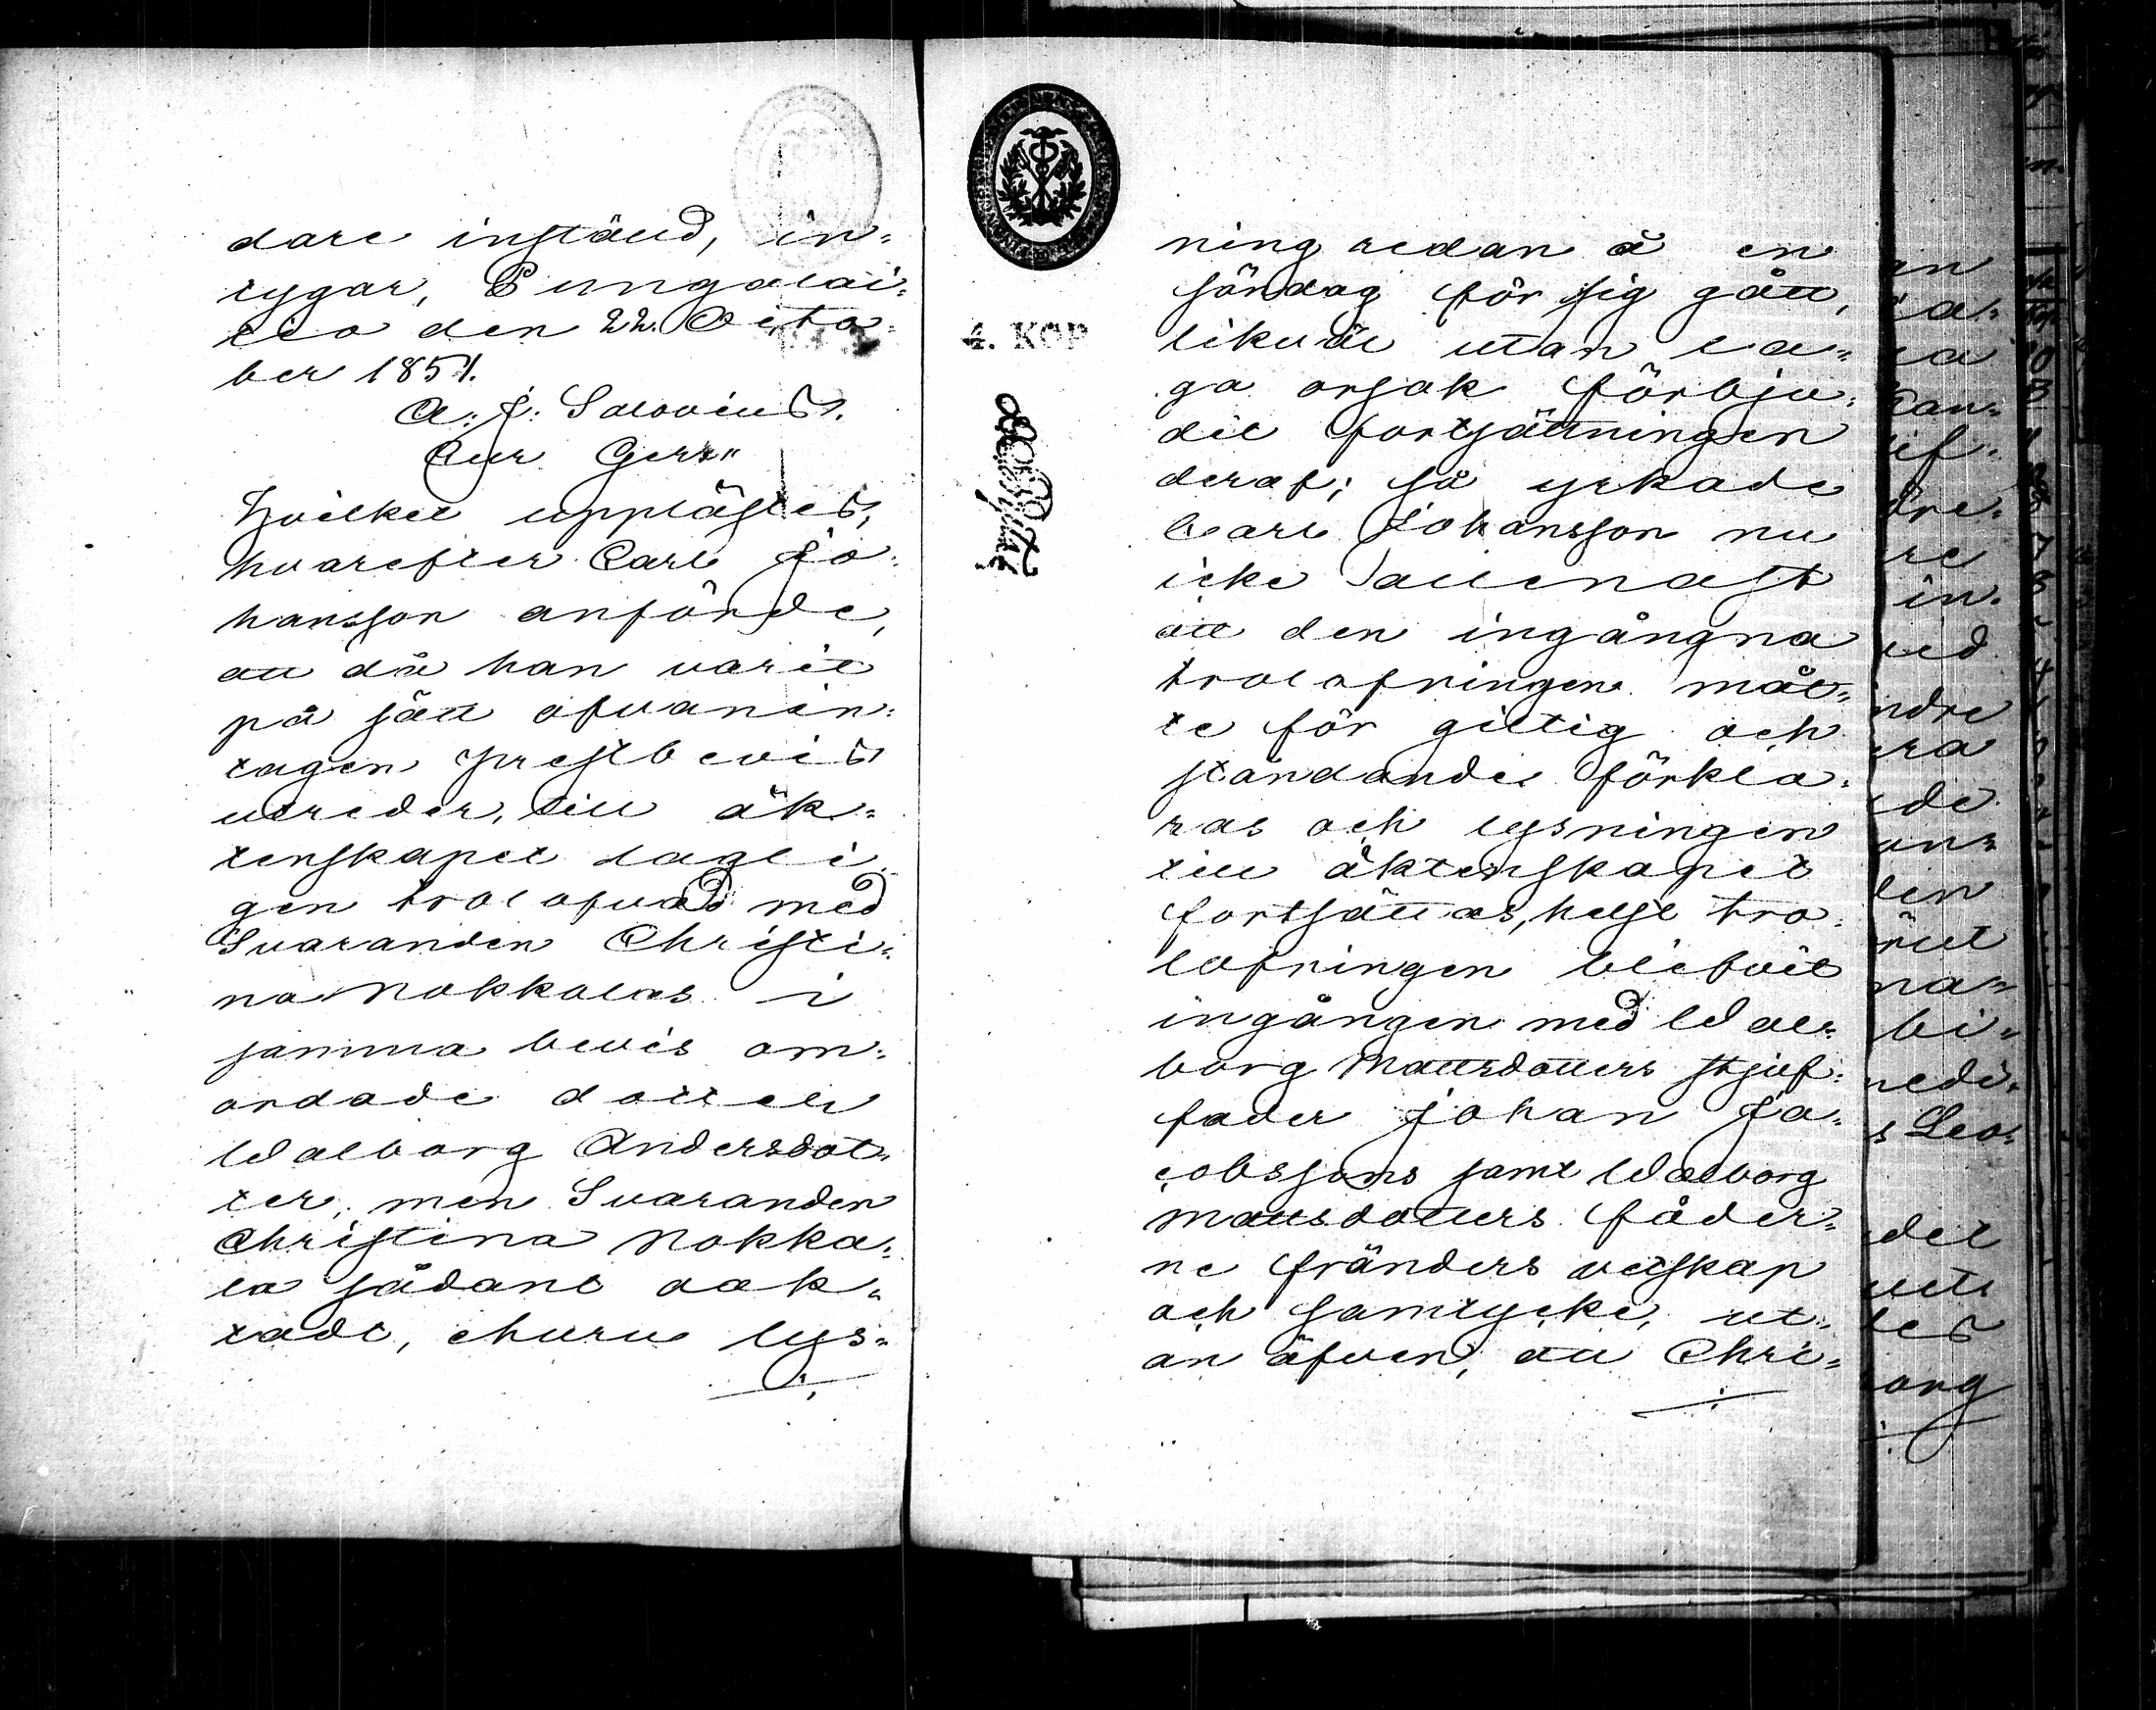 dare inständ, in-
tygar, Pungalai-
tio den 22. Octo-
ber 1851.
A: J: Salovius.
Cur Gers"
Hvilket upplästes,
hvarefter Carl Jo-
hansson anförde,
att då han varit
på sätt ofvanin-
tagen prestbevis
utreder, till äk-
tenskapet lagli-
gen trolofvad med
Svaranden Christi-
na Nokkalas i
samma bevis om-
ordade dotter
Walborg Andersdot-
ter, men Svaranden
Christina Nokka-
la sådant oak-
tadt, ehuru lys-
4. KOP
ning redan å en
söndag för sig gått,
likväl utan la-
ga orsak förbju-
dit fortsättningen
deraf; så yrkade
Carl Johansson nu
icke allenast
att den ingångna
trolofningen måt-
te för giltig och
ståndande förkla-
ras och lysningen
till äktenskapet
fortsättas, helst tro-
lofningen blifvit
ingången med Wal-
borg Mattsdotters stjuf-
fader Johan Ja-
cobssons samt Walborg
Mattsdotters fäder-
ne fränders vetskap
och samtycke, ut-
an äfven, att Chri-